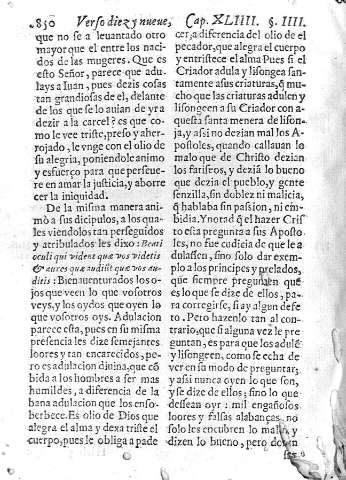 850 Verso diez y nueue, Cap. XLIIII. §. IIII.
que no se a leuantado otro
mayor que el entre los naci-
dos de las mugeres. Que es
esto Señor, parece que adu-
lays a Iuan, pues dezis cosas
tan grandiosas de el, delante
de los que se lo auian de yr a
dezir a la carcel? es que co-
mo le vee triste, preso y aher-
rojado, le vnge con el olio de
su alegria, poniendole animo
y esfuerço para que perseue-
re en amar la justicia, y aborre
cer la iniquidad.
De la misma manera ani-
mò a sus dicipulos, a los qua-
les viendolos tan perseguidos
y atribulados les dixo: Beati
oculi qui vident quæ vos videtis
& aures quæ audiũt quæ vos au-
ditis: Bienauenturados los o-
jos que veen lo que vosotros
veys, y los oydos que oyen lo
que vosotros oys. Adulacion
parece esta, pues en su misma
presencia les dize semejantes
loores y tan encarecidos, pe-
ro es adulacion diuina, que cõ
bida a los hombres a ser mas
humildes, a diferencia de la
bana adulacion que los enso-
berbece. Es olio de Dios que
alegra el alma y dexa triste el
cuerpo, pues le obliga a pade
cer, a diferencia del olio de el
pecador, que alegra el cuerpo
y entristece el alma Pues si el
Criador adula y lisongea san-
tamente a sus criaturas, q̃ mu
cho que las criaturas adulen y
lisongeen a su Criador con a-
questa santa menera de lison-
ja, y assi no dezian mal los A-
postoles, quando callauan lo
malo que de Christo dezian
los fariseos, y deziã lo bueno
que dezia el pueblo, y gente
senzilla, sin doblez ni malicia,
q̃ hablaba sin passion, ni em-
bidia. Y notad q̃ el hazer Cris
to esta pregunta a sus Aposto
les, no fue cudicia de que le a
dulassen, sino solo dar exemp-
lo a los principes y prelados,
que siempre preguntan què
es lo que se dize de ellos, pa-
ra corregirse, si ay algun defe
to. Pero hazenlo tan al con-
trario, que si alguna vez le pre
guntan, es para que los adulé
y lisongeen, como se echa de
ver en su modo de preguntar;
y assi nunca oyen lo que son,
y se dize de ellos; sino lo que
dessean oyr: mil engañosos
loores y falsas alabanças, no
solo les encubren lo malo, y
dizen lo bueno, pero